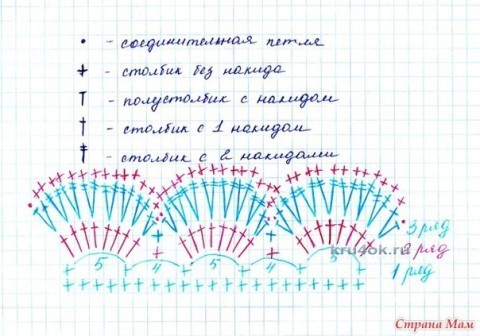 • - соединительная петля
+ - столбик без накида
T - полустолбик с накидом
† - столбик с 1 накидом
‡ - столбик с 2 накидами
3 ряд
2 ряд
1 ряд
5 4 5 4 5
kru4ok.ru
Страна Мам